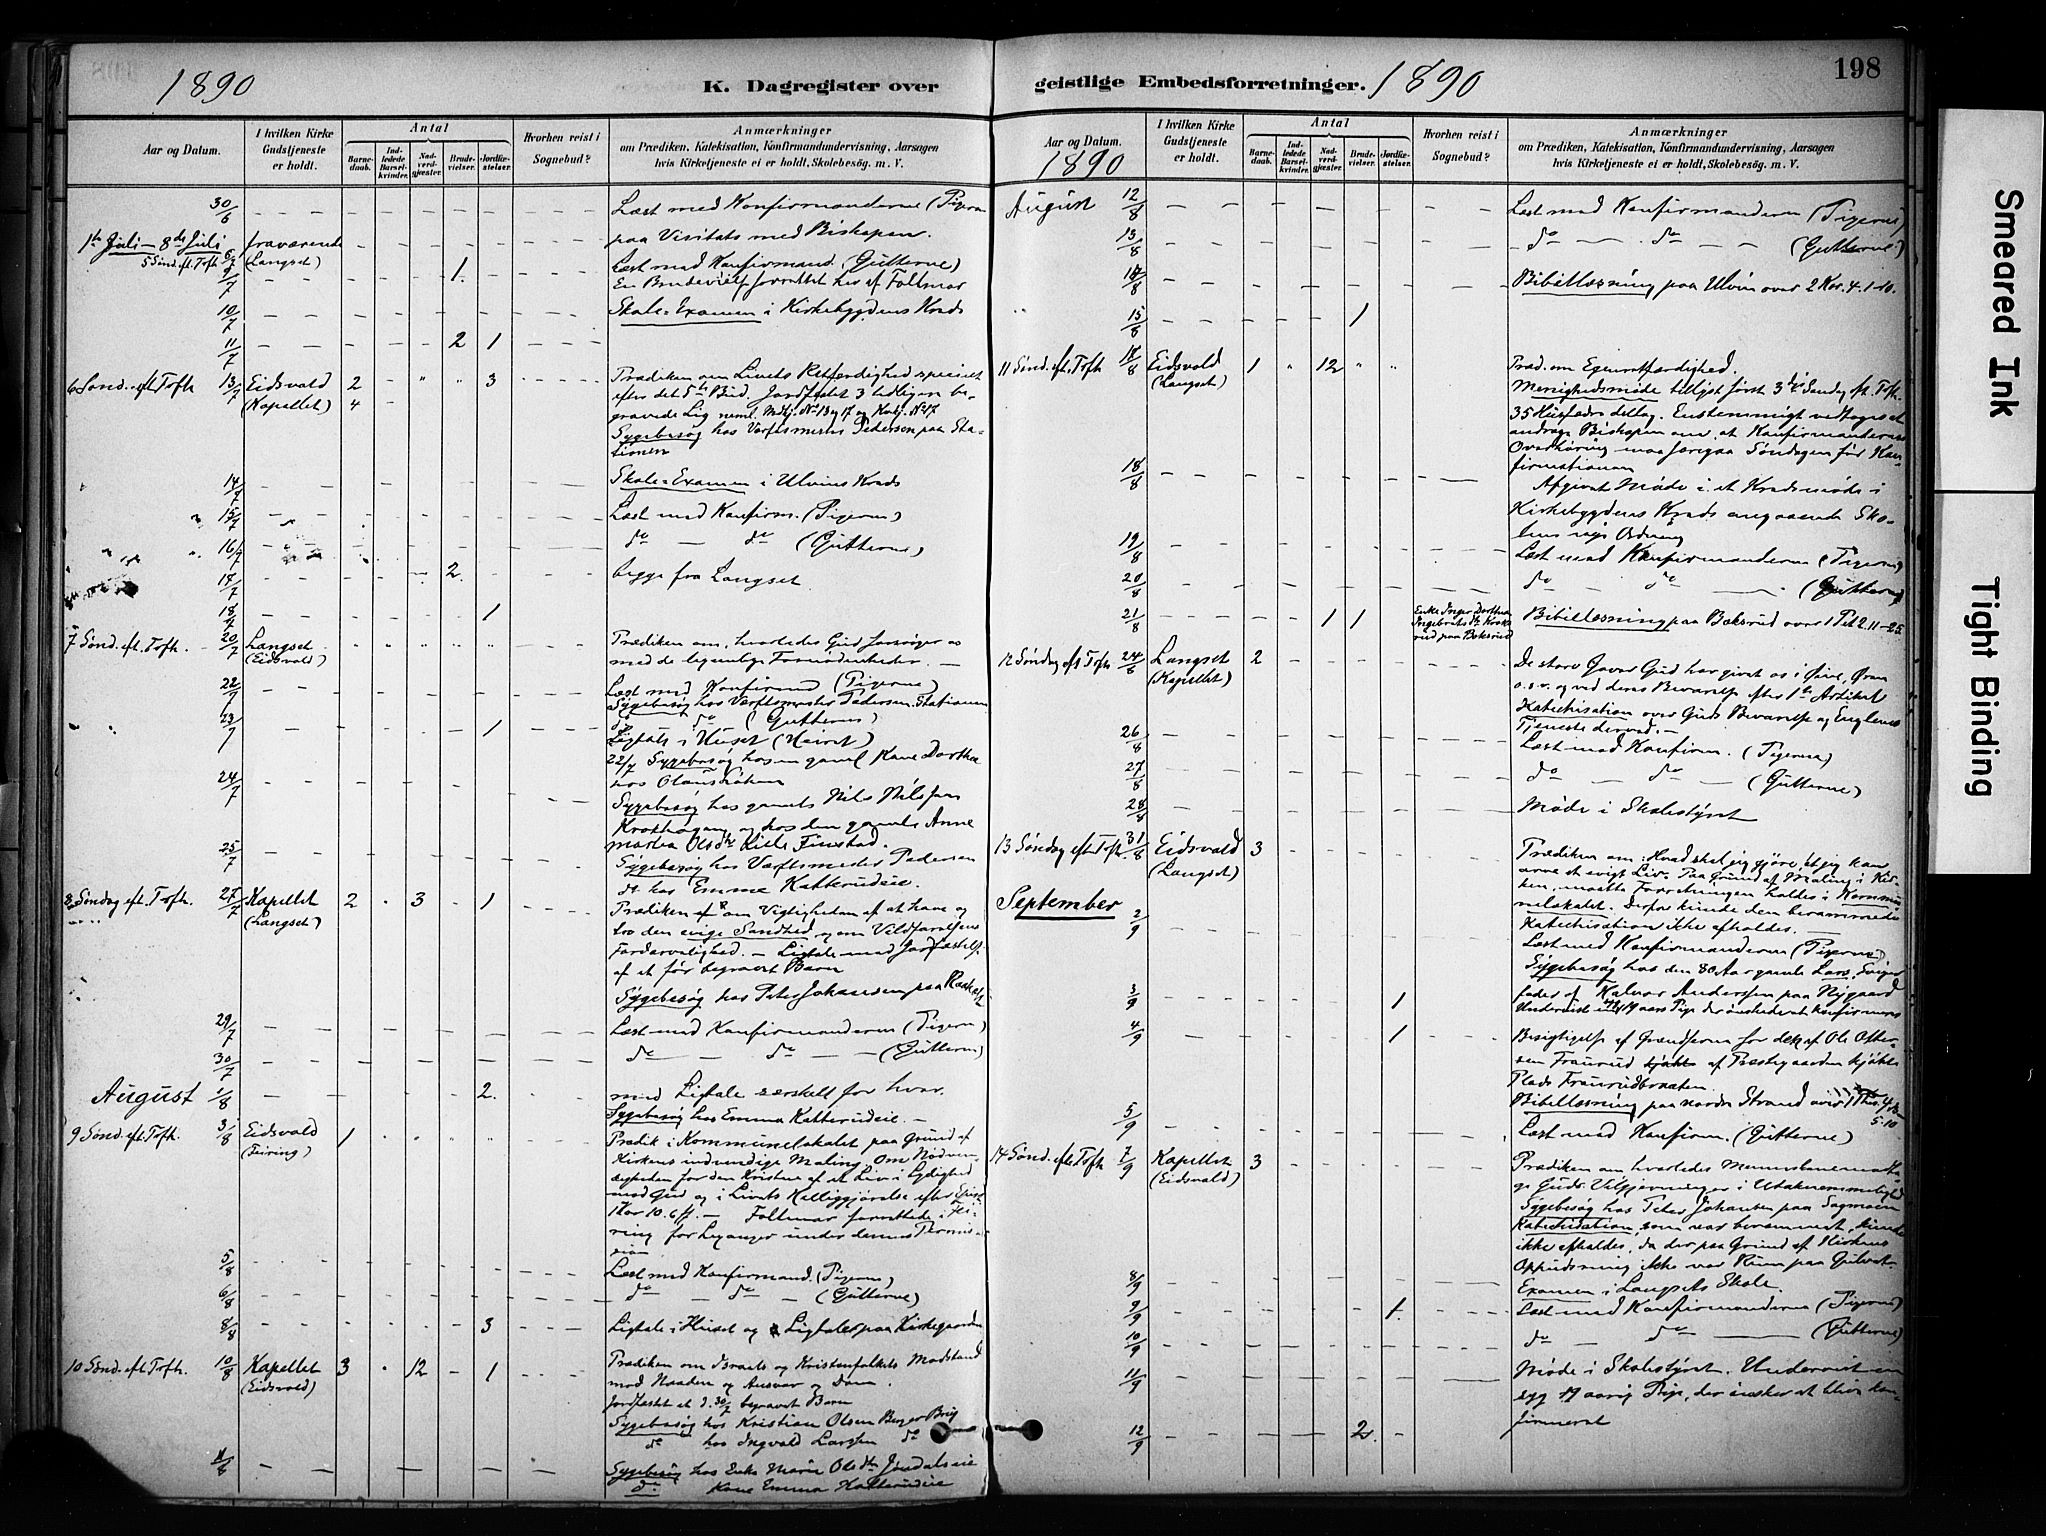 1890
K. Dagregister over
Aar og Datum.
I hvilken Kirke Gudstjeneste er holdt.
Antal
Barnedaab.
Indledede Barselkvinder.
Nadverdgjæster.
Brudevielser.
Jordfæstelser.
Hvorhen reist i Sognebud?
Anmærkninger
om Prædiken, Katekisation, Konfirmandundervisning, Aarsagen
hvis Kirketjeneste ei er holdt, Skolebesög. m. V.
30/6 Læst med Konfirmanderne (Pigerne
paa Visitats med Biskopen.
1ste Juli – 8de Juli fraværende
5 Sønd. eft. Tofh. 6/7 (Langset) Læst med Konfirmand. (Gutterne)
9/7 1. En Brudevielse forrettet her af Foltmar
10/7 Skole-Examen i Kirkebygdens Kreds
11/7 2 1
6 Sønd. eft. Tofh 13/7 Eidsvold 2 " " 3 Prædiken om Livets Retfærdighed specielt
(Kapellet) 4 efter det 5te Bud. Jordfæstet 3 tidligere be-
gravede Lig neml.
Sygebesøg hos Værftsmester Pedersen paa Sta-
tionen
14/7 Skole-Examen i Ulvins Kreds
15/7 Læst med Konfirm. (Pigerne)
16/7 do — do (Gutterne)
17/7 2. begge fra Langset
18/7 1
7 Sønd. eft. Tofh. 20/7 Langset Prædiken om, hvorledes Gud forsørger os
(Eidsvold) med de legemlige Fornødenheder. —
22/7 Læst med Konfirmand (Pigerne)
Sygebesøg hos Værftsmester Pedersen. Stationen
23/7 1 do do (Gutterne)
Ligtale i Huset
22/7 Sygebesøg hos en gamel Kone Dorthea
hos
24/7 Sygebesøg hos gamle Nils Nilssen
og hos den gamle Anne
Olsdtr Lille Finstad.
25/7 Sygebesøg hos Værftsmester Pedersen
dt. hos Emma Katterudeie.
8 Søndag eft. Tofh. 27/7 Kapellet 2 3 1 Prædiken om Vigtigheden af at have og
(Langset) tro den evige Sandhed og om Vildfarelsens
Fordærvelighed. — Ligtale med Jordfæstelse
af et før begravet Barn
Sygebesøg hos Peter Johansen paa
29/7 Læst med Konfirmanderne (Pigerne)
30/7 do — do — (Gutterne)
August 1/8 2. med Ligtale særskilt for hver.
Sygebesøg hos Emma Katterudeie. —
9 Sønd. eft. Tofh. 3/8 Eidsvold 1 Prædik i Kommunelokalet paa Grund af
(Feiring) Kirkens indvendige Maling. Om Nødven-
digheden for den Kristne af et Liv i Lydighed
mod Gud og i Livets Helliggjørelse efter Epist.
1 Kor 10. 6 ff. — Foltmar forrettede i Fei-
ring for Leganger under dennes Permis-
sion.
5/8 Læst med Konfirmand. (Pigerne)
6/8 do — do — (Gutterne)
8/8 3 Ligtale i Huset og Ligtaler paa Kirkegaarden
10 Sønd. eft. Tofh. 10/8 Kapellet 3 12 1 Prædiken om Israels og Kristenfolkets Modstand
(Eidsvold) mod Naaden og Ansvar og Dom.
Jordfæstet et d. 30/7 begravet Barn
Sygebesøg hos Kristian Olsen
do hos Ingvald Larssen do
11/8 Sygebesøg hos Enke Marie Olsdtr Jøndalseie
do. Kone Emma Katterudeie
geistlige Embedsforretninger. 1890
198
Aar og Datum.
1890
I hvilken Kirke Gudstjeneste er holdt.
Antal
Barnedaab.
Indledede Barselkvinder.
Nadverdgjæster.
Brudevielser.
Jordfæstelser.
Hvorhen reist i Sognebud?
Anmærkninger
om Prædiken, Katekisation, Konfirmandundervisning, Aarsagen
hvis Kirketjeneste ei er holdt, Skolebesög. m. V.
August 12/8 Læst med Konfirmanderne (Pigerne)
13/8 do — do — (Gutterne)
14/8 Bibellæsning paa Ulvin over 2 Kor. 4. 1-10.
15/8 1
11 Sønd. eft. Tofh 17/8 Eidsvold 1 " 12 " " Præd. om Egenretfærdighed.
(Langset) Menighedsmøde tillyst først 3die Søndag eft. Tofh.
35 Husfædre deltog. Enstemmigt vedtoges at
andrage Biskopen om, at Konfirmandernes
Overhøring maa foregaa Søndagen før Kon-
firmationen
18/8 Afgivet Møde i et Kredsmøde i
Kirkebygdens Kreds angaaende Sko-
lens nye Ordning
19/8 Læst med Konfirmanderne (Pigerne)
20/8 do do — (Gutterne)
21/8 1 1 Enke Inger Dorthea Ingebretsdtr paa Bøksrud Bibellæsning paa Bøksrud over 1 Pet 2. 11-25.
12 Søndag eft Tofh 24/8 Langset 2 De store Gaver Gud har givet os i Øine, Øren
(Kapellet) o.s.v. og ved deres Bevarelse efter 1ste Artikel
Katechisation over Guds Bevarelse og Englenes
Tjeneste derved. —
26/8 Læst med Konfirm. (Pigerne)
27/8 do — do — (Gutterne)
28/8 Møde i Skolestyret
13 Søndag eft. Tofh. 31/8 Eidsvold 3 Prædiken om: Hvad skal jeg gjøre, at jeg kan
(Langset) arve et evigt Liv. Paa Grund af Maling i Kir-
ken, maatte Forretningen holdes i Kommu-
nelokalet. Derfor kunde den berammede
Katechisation ikke afholdes. —
September 2/9 Læst med Konfirmanderne (Pigerne)
Sygebesøg hos den 80 Aar gamle Lars, Sviger
fader af Halvor Anderssen paa Nygaard
3/9 1 Undervist en syg 19 aars Pige der ønskede at konfirmeres
4/9 1 Besigtigelse af Grændserne for den af Ole Otter-
sen Fraurud af Præstegaarden kjøbte
Plads Fraurudbraaten.
Bibellæsning paa nordre Strand over 1 Thes. 4. 13
5. 10
5/9 Læst med Konfirm. (Gutterne)
14 Sønd. efter Tofh 7/9 Kapellet 3 Prædiken om hvorledes Menneskene modta-
(Eidsvold) ge Guds Velgjerninger i Utaknemmelighed
Sygebesøg hos Peter Johansen paa Sagmoen
Katechisation, som var berammet, kunde
ikke afholdes, da der paa Grund af Kirkens
Oppudsning ikke var Rum paa Gulvet.
8/9 Examen i Langsets Skole.
9/9 1. Læst med Konfirmanderne (Pigerne)
10/9 do do — (Gutterne)
11/9 Møde i Skolestyret. Undervist en
syg 19 aarig Pige, der ønsker at blive kon-
firmeret
12/9 2.
Smeared Ink
Tight Binding